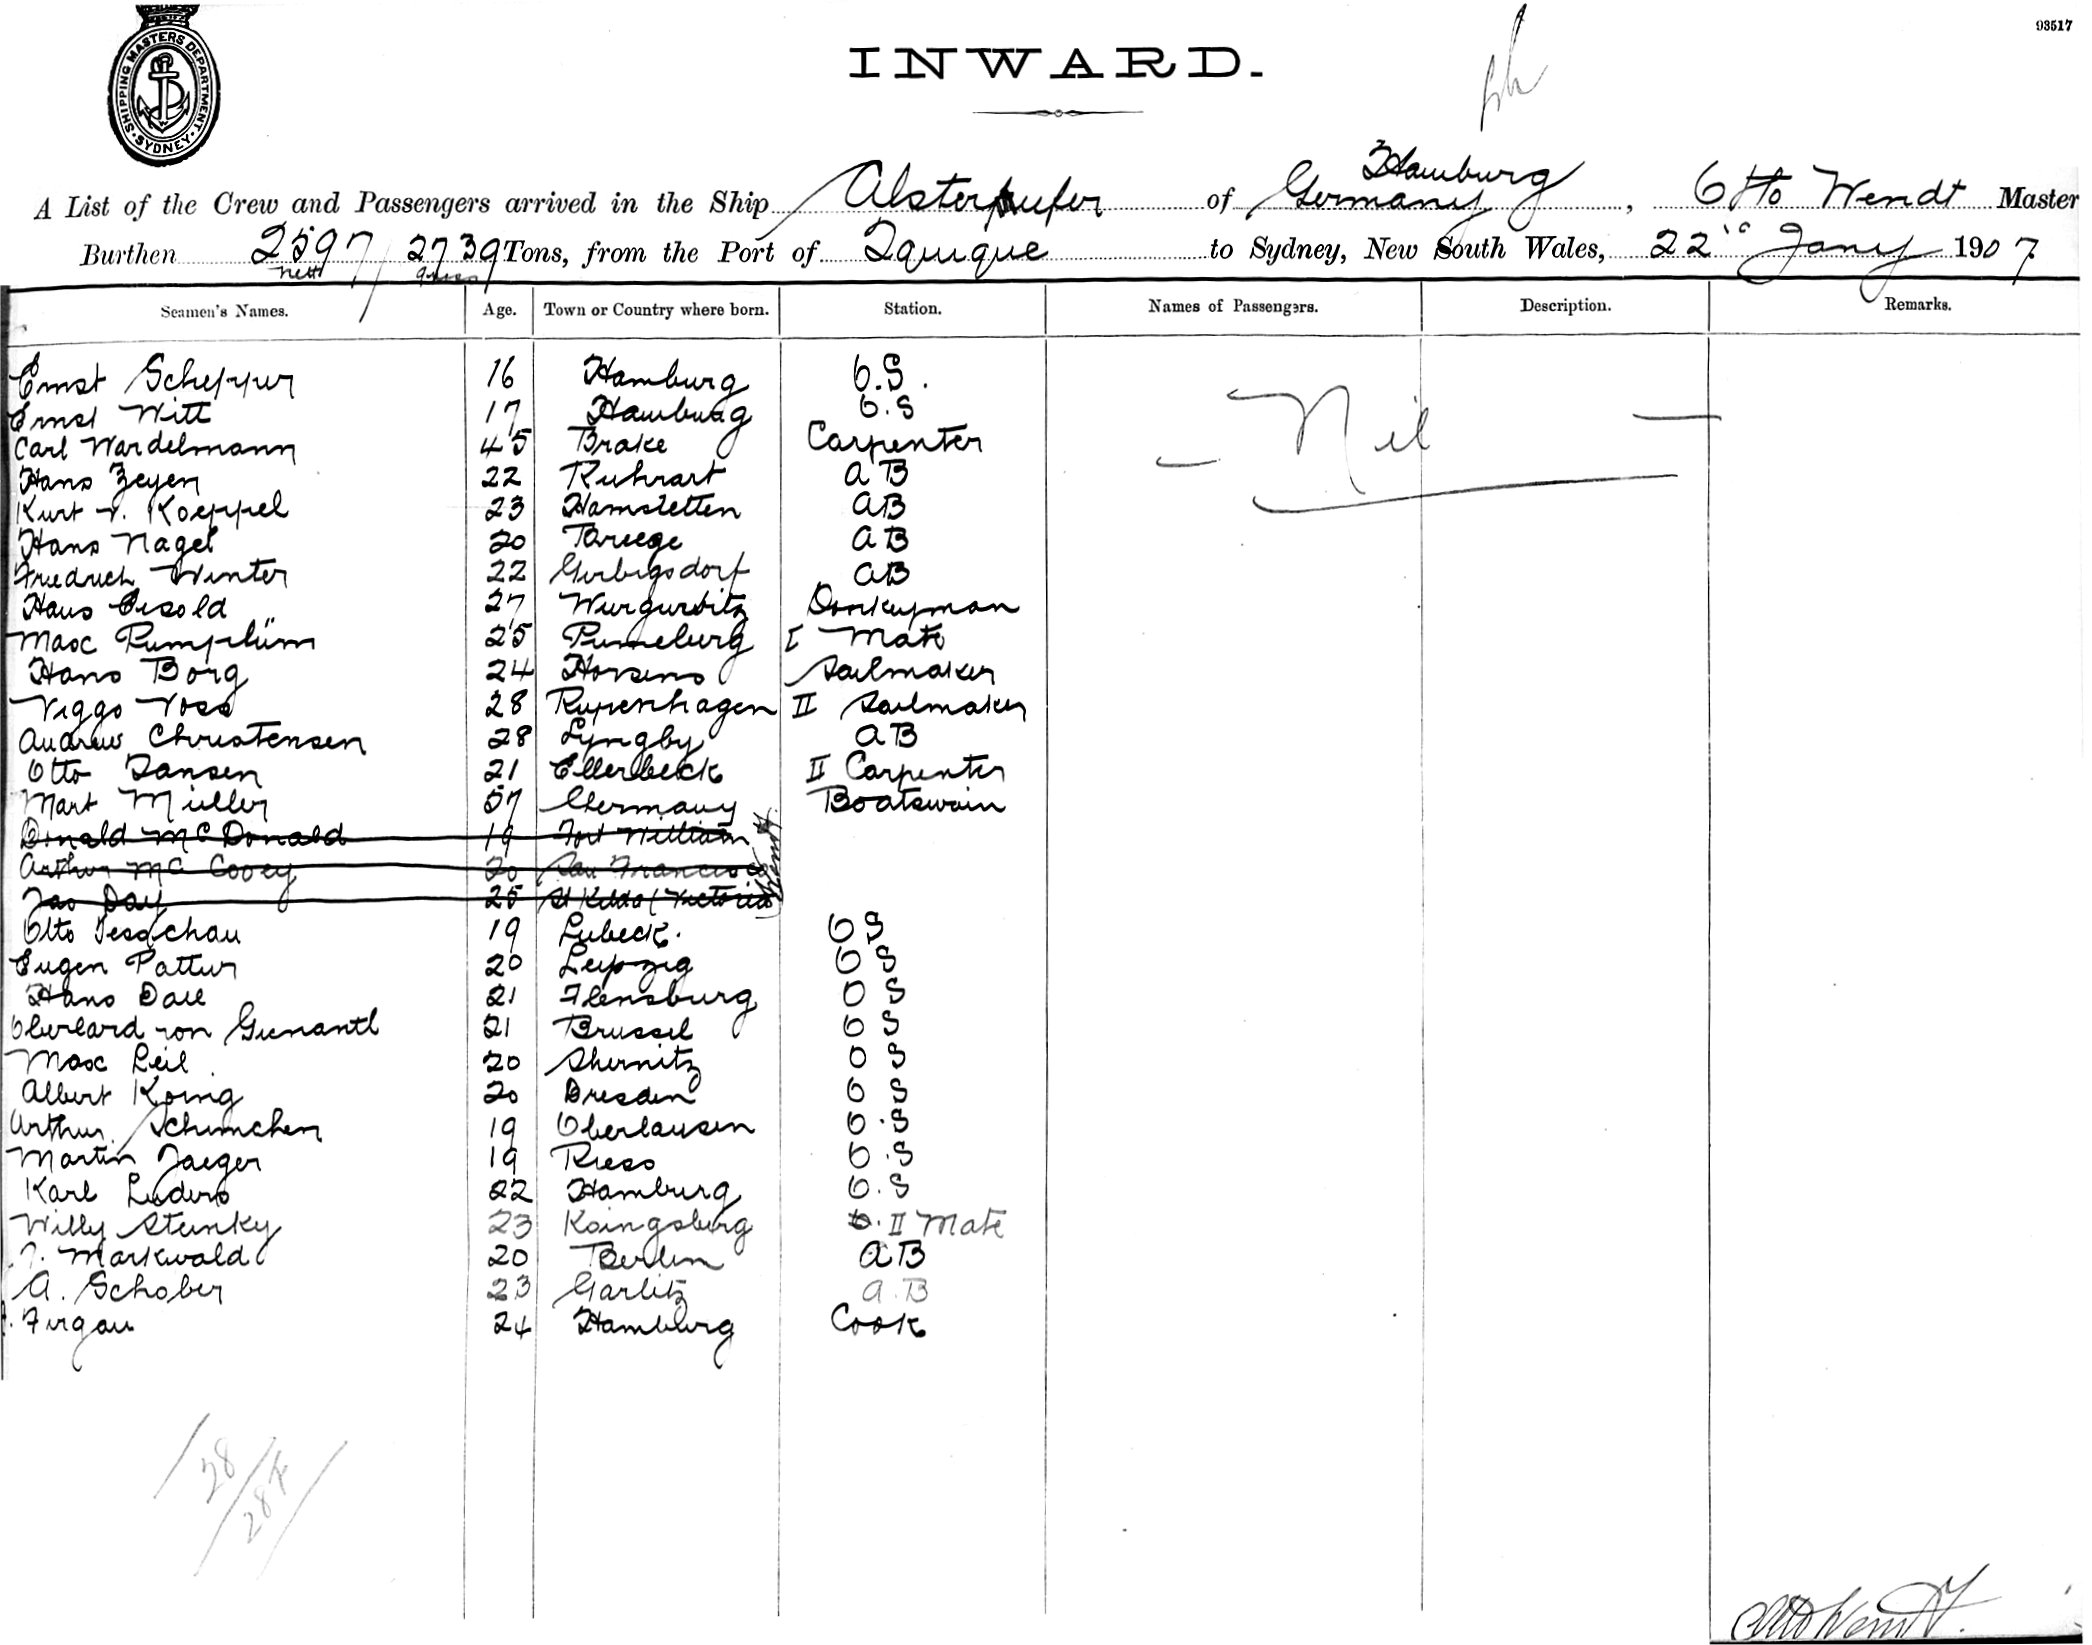 93517
SHIPPING MASTERS DEPARTMENT
SYDNEY
INWARD.
A List of the Crew and Passengers arrived in the Ship Alsterufer of Hamburg Germany, Otto Wendt Master
Burthen 2597 nett / 2739 gross Tons, from the Port of Iquique to Sydney, New South Wales, 22nd Jany 1907
Seamen's Names. Age. Town or Country where born. Station. Names of Passengers. Description. Remarks.
Ernst Schepper 16 Hamburg O.S.
Ernst Witt 17 Hamburg O.S
Carl Wardelmann 45 Brake Carpenter
Hans Zeyen 22 Ruhrart AB
Kurt v. Koeppel 23 Hamstetten AB
Hans Nagel 20 Breege AB
Friedrich Winter 22 Gerbigsdorf AB
Hans 27 Wurgurbitz Donkeyman
Max Pumplüm 25 I Mate
Hans Borg 24 Horsens Sailmaker
Viggo Voss 28 Kopenhagen II Sailmaker
Andrew Christensen 28 Lyngby AB
Otto Jansen 21 Ellerbeck II Carpenter
Mart Müller 57 Germany Boatswain
Donald McDonald 19 Fort William
Arthur McCooey 20 San Francisco
Jas Day 25 St Kilda (Victoria)
Otto Tesdchau 19 Lubeck. OS
Eugen Pattur 20 Leipzig OS
Hans Dall 21 Flensburg OS
von 21 Brussel OS
Max Leil 20 OS
Albert Konig 20 Dresden OS
Arthur Schimchen 19 Oberlausen O.S
Martin Jaeger 19 Riesa O.S
Karl Luders 22 Hamburg O.S
Willy Stunky 23 Koingsburg II Mate
Markwald 20 Berlin AB
A. Schober 23 Garlitz A.B
Firgau 24 Hamburg Cook
Nil
28
28
Otto Wendt